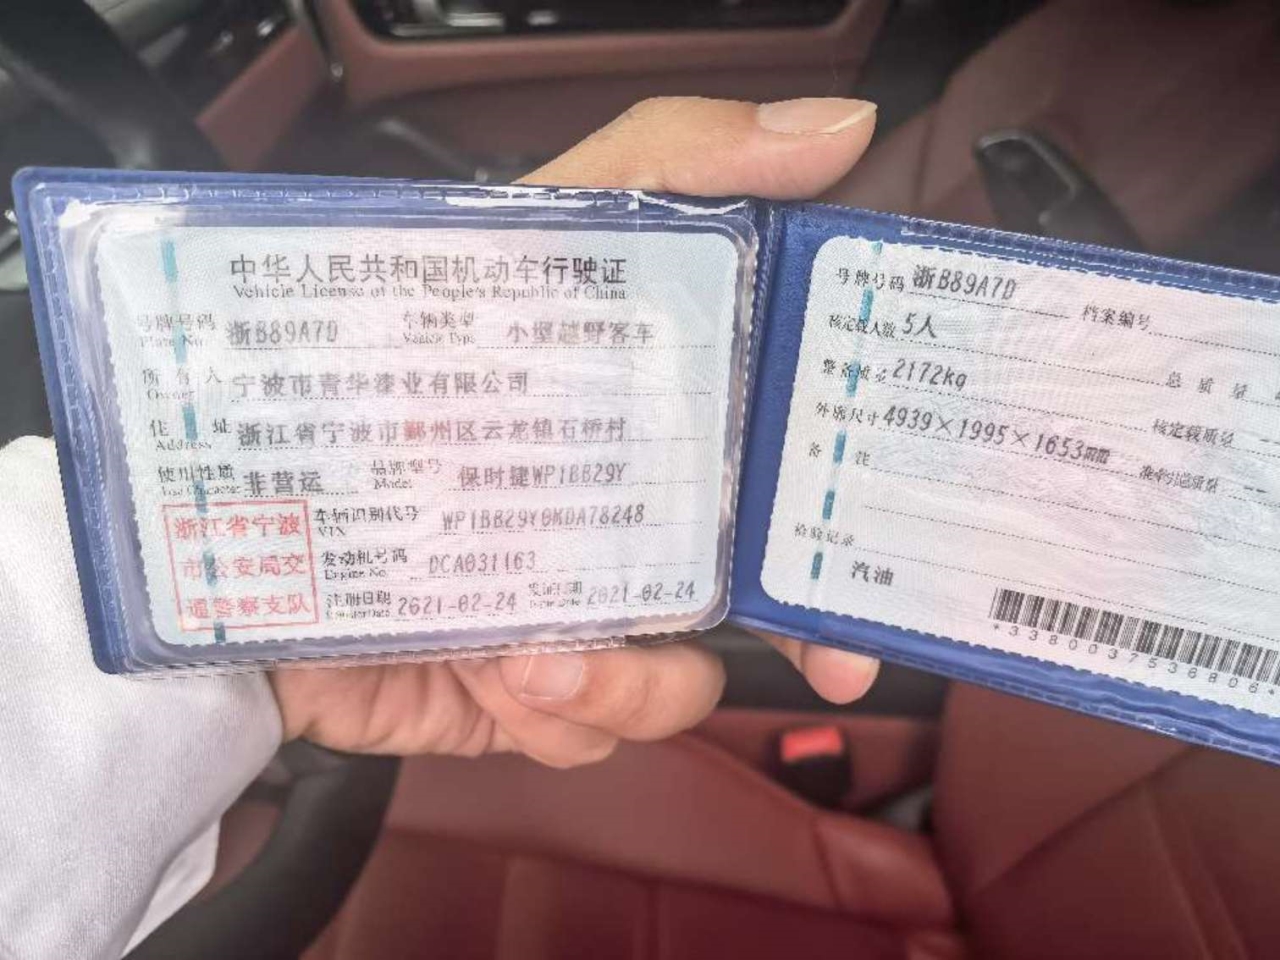 中华人民共和国机动车行驶证
Vehicle License of the People's Republic of China
号牌号码 浙B89A7D 车辆类型 小型越野客车
Plate No. Vehicle Type
所有人 宁波市青华漆业有限公司
Owner
住址 浙江省宁波市鄞州区云龙镇石桥村
Address
使用性质 非营运 品牌型号 保时捷WP1BB29Y
Use Character Model
浙江省宁波
市公安局交
通警察支队
车辆识别代号 WP1BB29Y0MDA78248
VIN
发动机号码 DCA031163
Engine No.
注册日期 2021-02-24 发证日期 2021-02-24
Register Date Issue Date
号牌号码 浙B89A7D 档案编号
核定载人数 5人 总质量
整备质量 2172kg 核定载质量 --
外廓尺寸 4939×1995×1653mm 准牵引总质量 --
备注
检验记录
汽油
*3380037536806*